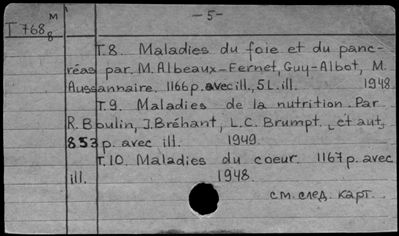 — 5 —
Т 768 М 8
T.8. Maladies du foie et du panc-
réas par. M. Albeaux-Fernet, Guy-Albot, M.
Aussannaire. 1166 p. avec ill., 5 L. ill. 1948
T.9. Maladies de la nutrition. Par
R. Boulin, J. Bréhant, L.C. Brumpt. , et aut.
853 p. avec ill. 1949.
T.10. Maladies du coeur. 1167 p. avec
ill. 1948.
см. след. карт.